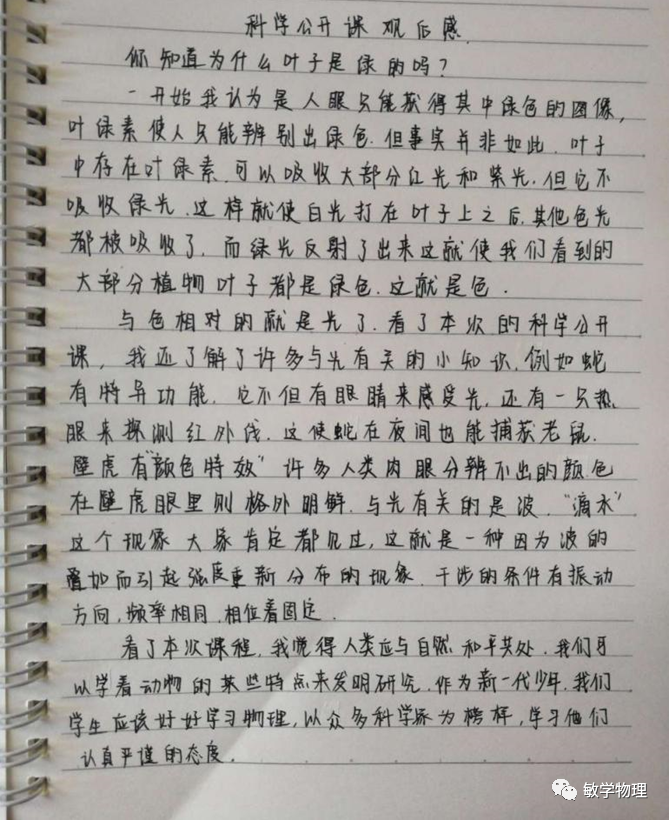 科学公开课观后感
你知道为什么叶子是绿的吗？
一开始我认为是人眼只能获得其中绿色的图像，
叶绿素使人只能辨别出绿色.但事实并非如此.叶子
中存在叶绿素.可以吸收大部分红光和紫光.但它不
吸收绿光.这样就使白光打在叶子上之后.其他色光
都被吸收了.而绿光反射了出来这就使我们看到的
大部分植物叶子都是绿色.这就是色.
与色相对的就是光了.看了本次的科学公开
课，我还了解了许多与光有关的小知识.例如蛇
有特异功能.它不但有眼睛来感受光.还有一只热
眼来探测红外线.这使蛇在夜间也能捕获老鼠.
壁虎有"颜色特效"许多人类肉眼分辨不出的颜色
在壁虎眼里则格外明鲜.与光有关的是波."滴水"
这个现象大家肯定都见过，这就是一种因为波的
叠加而引起强度重新分布的现象.干涉的条件有振动
方向.频率相同.相位差固定.
看了本次课程，我觉得人类应与自然和平共处.我们可
以学着动物的某些特点来发明研究.作为新一代少年.我们
学生应该好好学习物理，以众多科学家为榜样，学习他们
认真严谨的态度.
敏学物理